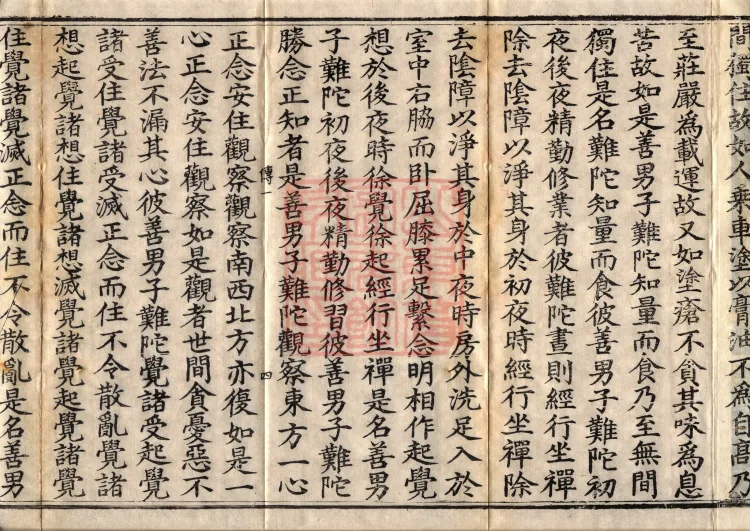 間獨住故如人乘車塗以膏油不為自高乃
至莊嚴為載運故又如塗瘡不貪其味為息
苦故如是善男子難陀知量而食乃至無間
獨住是名難陀知量而食彼善男子難陀初
夜後夜精勤修業者彼難陀晝則經行坐禪
除去陰障以淨其身於初夜時經行坐禪除
去陰障以淨其身於中夜時房外洗足入於
室中右脇而臥屈膝累足繫念明相作起覺
想於後夜時徐覺徐起經行坐禪是名善男
子難陀初夜後夜精勤修習彼善男子難陀
勝念正知者是善男子難陀觀察東方一心
傳 四
正念安住觀察觀察南西北方亦復如是一
心正念安住觀察如是觀者世間貪憂惡不
善法不漏其心彼善男子難陀覺諸受起覺
諸受住覺諸受滅正念而住不令散亂覺諸
想起覺諸想住覺諸想滅覺諸覺起覺諸覺
住覺諸覺滅正念而住不令散亂是名善男